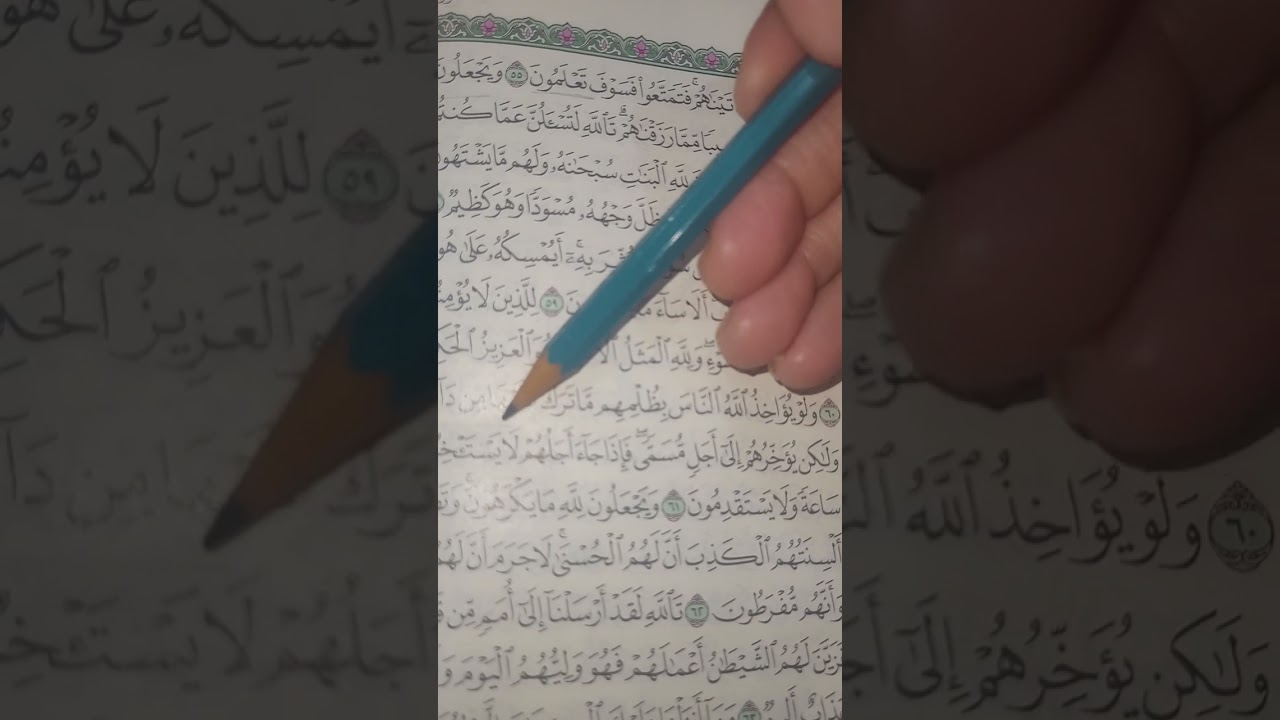 تَيْنَٰهُمْ ۚ فَتَمَتَّعُوا۟ فَسَوْفَ تَعْلَمُونَ ٥٥ وَيَجْعَلُونَ
مِّمَّا رَزَقْنَٰهُمْ ۗ تَٱللَّهِ لَتُسْـَٔلُنَّ عَمَّا كُنتُ
لِلَّهِ ٱلْبَنَٰتِ سُبْحَٰنَهُۥ وَلَهُم مَّا يَشْتَهُونَ
ظَلَّ وَجْهُهُۥ مُسْوَدًّا وَهُوَ كَظِيمٌ
بِهِۦٓ ۚ أَيُمْسِكُهُۥ عَلَىٰ هُو
أَلَا سَآءَ ٥٩ لِلَّذِينَ لَا يُؤْمِنُ
وَلِلَّهِ ٱلْمَثَلُ ٱلْعَزِيزُ ٱلْحَكِ
٦٠ وَلَوْ يُؤَاخِذُ ٱللَّهُ ٱلنَّاسَ بِظُلْمِهِم مَّا تَرَكَ مِن دَآ
وَلَٰكِن يُؤَخِّرُهُمْ إِلَىٰٓ أَجَلٍ مُّسَمًّى ۖ فَإِذَا جَآءَ أَجَلُهُمْ لَا يَسْتَـْٔخِ
سَاعَةً وَلَا يَسْتَقْدِمُونَ ٦١ وَيَجْعَلُونَ لِلَّهِ مَا يَكْرَهُونَ ۚ وَتَ
أَلْسِنَتُهُمُ ٱلْكَذِبَ أَنَّ لَهُمُ ٱلْحُسْنَىٰ ۚ لَا جَرَمَ أَنَّ لَهُمُ
وَأَنَّهُم مُّفْرَطُونَ ٦٢ تَٱللَّهِ لَقَدْ أَرْسَلْنَآ إِلَىٰٓ أُمَمٍ مِّن
فَزَيَّنَ لَهُمُ ٱلشَّيْطَٰنُ أَعْمَٰلَهُمْ فَهُوَ وَلِيُّهُمُ ٱلْيَوْمَ وَ
عَذَابٌ أَلِيمٌ ٦٣